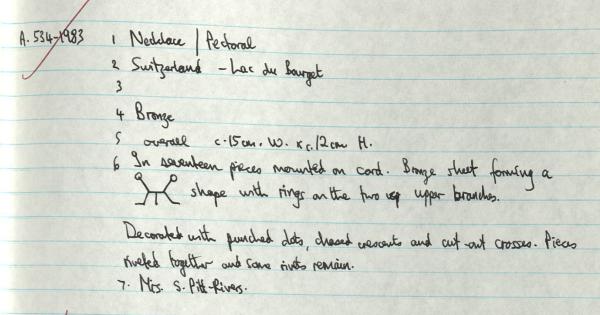 A. 534-1983 1 Necklace / Pectoral
2 Switzerland - Lac du Bourget
3
4 Bronze
5 overall c.15cm. W. x c.12cm H.
6 In seventeen pieces mounted on card. Bronze sheet forming a
shape with rings on the two upper branches.
Decorated with punched dots, chased crescents and cut-out crosses. Pieces
riveted together and some rivets remain.
7. Mrs. S. Pitt-Rivers.